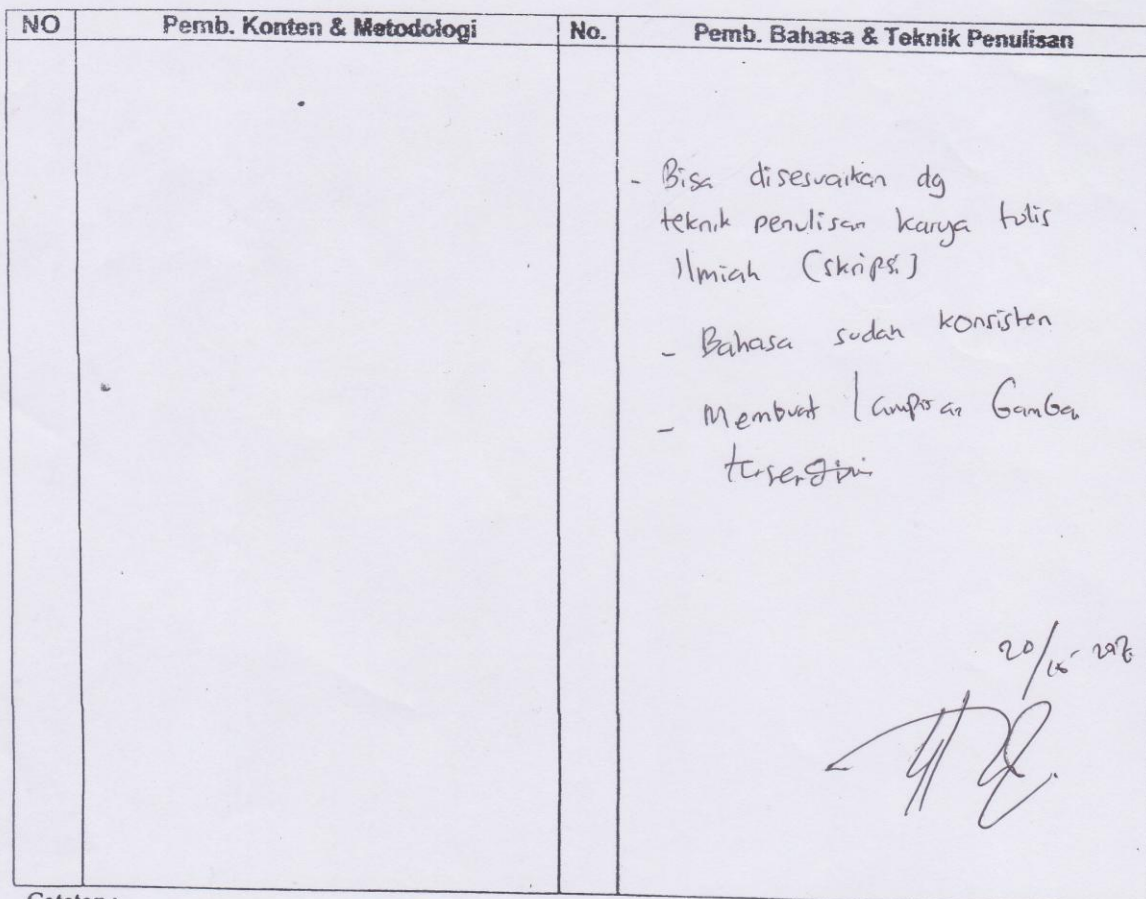 NO Pemb. Konten & Metodologi No. Pemb. Bahasa & Teknik Penulisan
- Bisa disesuaikan dg
teknik penulisan karya tulis
Ilmiah (skripsi)
- Bahasa sudah konsisten
- Membuat lampiran Gambar
tersendiri
20/
Catatan :